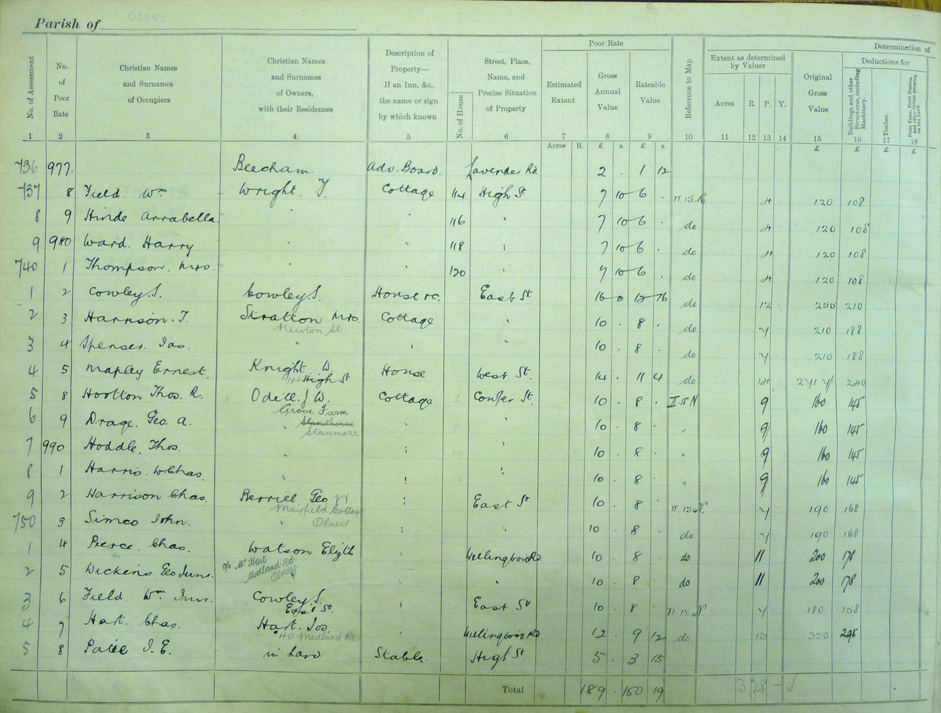 Parish of Olney
Determination of
No. of Assessment
No. of Poor Rate
Christian Names and Surnames of Occupiers
Christian Names and Surnames of Owners, with their Residences
Description of Property— If an Inn, &c., the name or sign by which known
No. of House
Street, Place, Name, and Precise Situation of Property
Poor Rate
Estimated Extent
Gross Annual Value
Rateable Value
Reference to Map
Extent as determined by Valuer
Acres R. P. Y.
Original Gross Value
Deductions for
Buildings and other Structures, including Machinery.
Timber.
1 2 3 4 5 6 7 8 9 10 11 12 13 14 15 16 17 18
Acres R. £ s. £ s. £ £ £ £
736 977 Beecham Adv. Board Lavender Rd 2 . 1 12
737 8 Field Wm Wright T. Cottage 114 High St 7 10 6 . 4 120 108
8 9 Hinde Arrabella " " 116 7 10 6 do 4 120 108
9 980 Ward. Harry " " 118 " 7 10 6 do 4 120 108
740 1 Thompson. Mrs " " 120 " 7 10 6 do 4 120 108
1 2 Cowley S. Cowley S. House &c. East St 16 0 12 16 do 12 250 210
2 3 Harrison. T. Stratton Mrs Cottage " 10 . 8 . do 210 188
Newton St
3 4 Spenser Jas. " " 10 . 8 do 210 188
4 5 Mapley Ernest Knight W House West St. 14 . 11 4 do 14 240
High St
5 8 Hootton Thos. R. Odell. J W. Cottage 10 . 8 . II.15 N 9 160 145
Grove Farm
6 9 Drage. Geo. A. " " 10 . 8 . " 9 160 145
Stanmore
7 990 Hoddle. Thos " " 10 . 8 " 9 160 145
8 1 Harris. W Chas. " " 10 . 8 " 9 160 145
9 2 Harrison Chas. Berrill Geo " East St 10 . 8 190 168
Mairfield Cottage
Olney
750 3 Simco John. " " " 10 . 8 do 190 168
1 4 Pierce. Chas. Watson Elizth " Wellingboro Rd 10 . 8 do 11 200 178
Midland Rd
Olney
2 5 Dickens Geo Junr. " " 10 . 8 do 11 200 178
3 6 Field Wm Junr Cowley S. " East St 10 . 8 . 180 158
East St
4 7 Hart. Chas. Hart. Jos. Wellingboro Rd 12 . 9 12 do 330 295
40 Midland Rd
5 8 J. E. in hand Stable High St 5 . 3 15
Total 189 . 150 19
328 - √